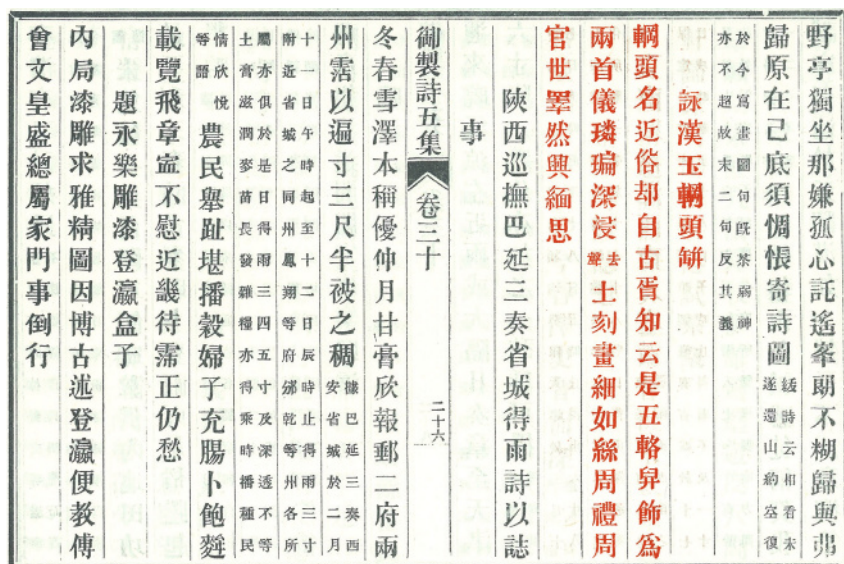 野亭獨坐那嫌孤心託遙峯不糊歸與弗
歸原在己底須惆悵寄詩圖
緩時云相看未
遂還山約空復
於今寫畫圖句旣茶弱神
亦不超故末二句反其義
詠漢玉輞頭缾
輞頭名近俗却自古胥知云是五輅舁飾爲
兩首儀璘㻞深浸去聲土刻畫細如絲周禮周
官世睪然興緬思
陝西巡撫巴延三奏省城得雨詩以誌
事
御製詩五集 卷三十 二十六
冬春雪澤本稱優仲月甘膏欣報郵二府兩
州霑以遍寸三尺半被之稠
據巴延三奏西
安省城於二月
十一日午時起至十二日辰時止得雨三寸
附近省城之同州鳳翔等府邠乾等州各所
屬亦俱於是日得雨三四五寸及深透不等
土膏滋潤麥苗長發雜糧亦得乘時播種民
情欣悅
等語
農民舉趾堪播穀婦子充腸卜飽麰
載覽飛章寍不慰近畿待霈正仍愁
題永樂雕漆登瀛盒子
內局漆雕求雅精圖因博古述登瀛便教傅
會文皇盛總屬家門事倒行